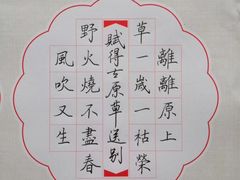 離離原上
草一歲一枯榮
賦得古原草送別
野火燒不盡春
風吹又生